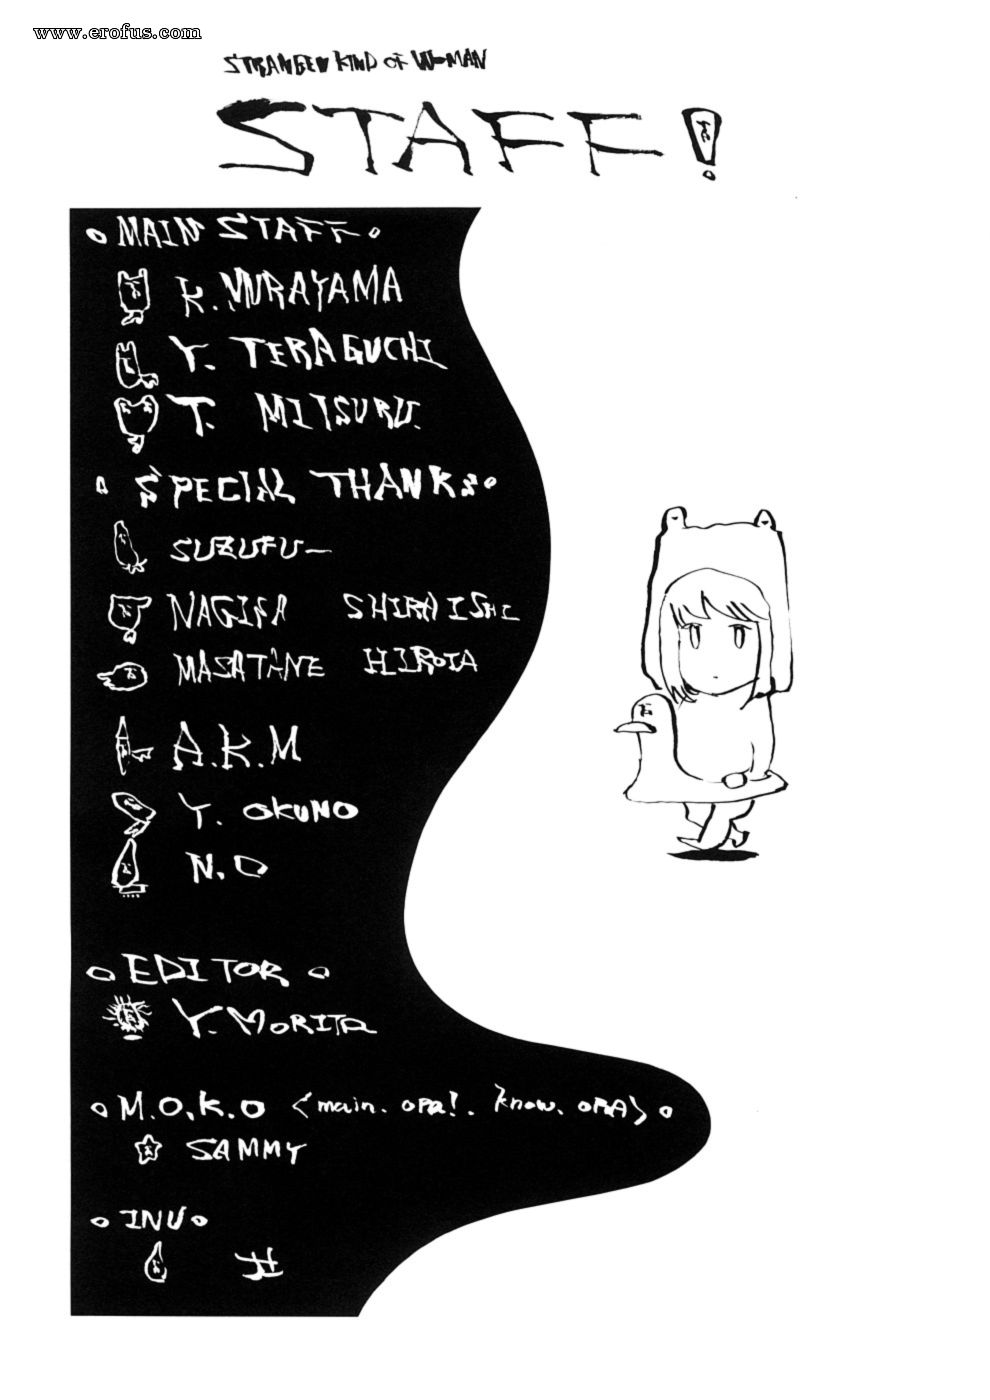 www.erofus.com
STRANGE KIND OF WOMAN
STAFF!
MAIN STAFF
K. MURAYAMA
Y. TERAGUCHI
T. MITSURU.
SPECIAL THANKS
SUZUFU—
NAGISA SHIRAISHI
MASATANE HIROTA
A.K.M
Y. OKUNO
N.O
EDITOR
Y. MORITA
M.O.K.O <main. OPA!. know. OPA>
SAMMY
INU